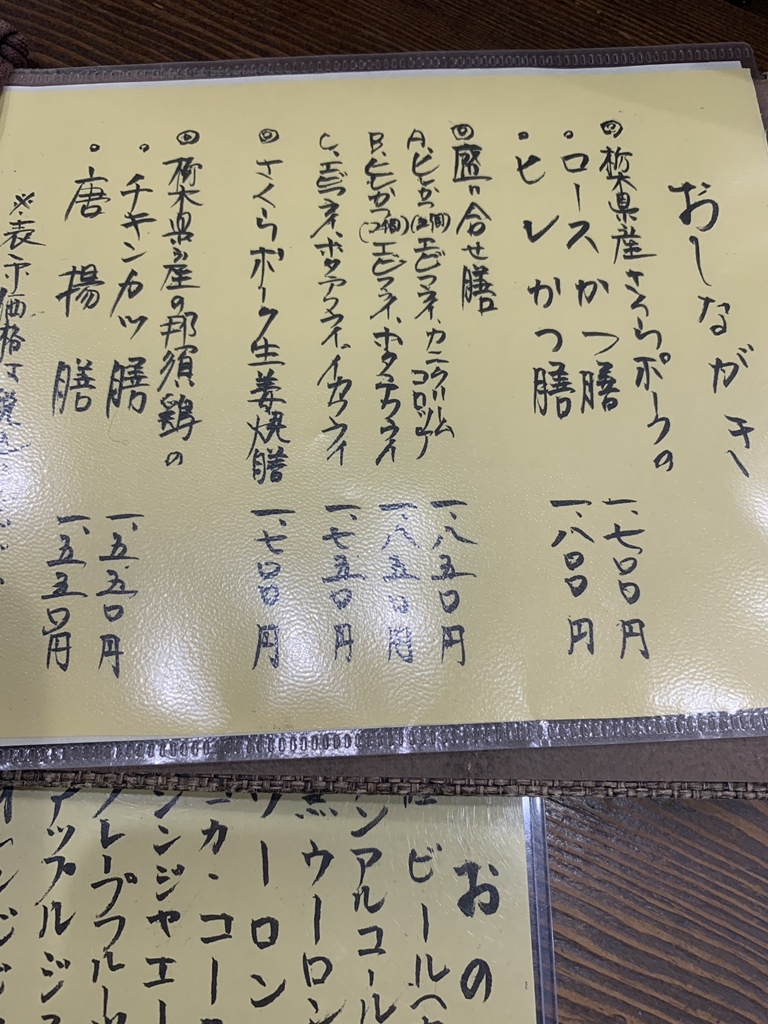 おしながき
◎栃木県産さくらポークの
・ロースかつ膳 一、七〇〇円
・ヒレかつ膳 一、八〇〇円
◎盛り合せ膳
A、ヒレかつ(2個)エビフライ、カニクリームコロッケ 一、八五〇円
B、ヒレかつ(2個)エビフライ、ホタテフライ 一、八五〇円
C、エビフライ、ホタテフライ、イカフライ 一、七五〇円
◎さくらポーク生姜焼膳 一、七〇〇円
◎栃木県産の那須鶏の
・チキンカツ膳 一、五五〇円
・唐揚膳 一、五五〇円
※表示価格は税込
おの
ビール
ンアルコール
黒ウーロン
ウーロン
コカ・コー
ジンジャエー
グレープフルー
アップルジ